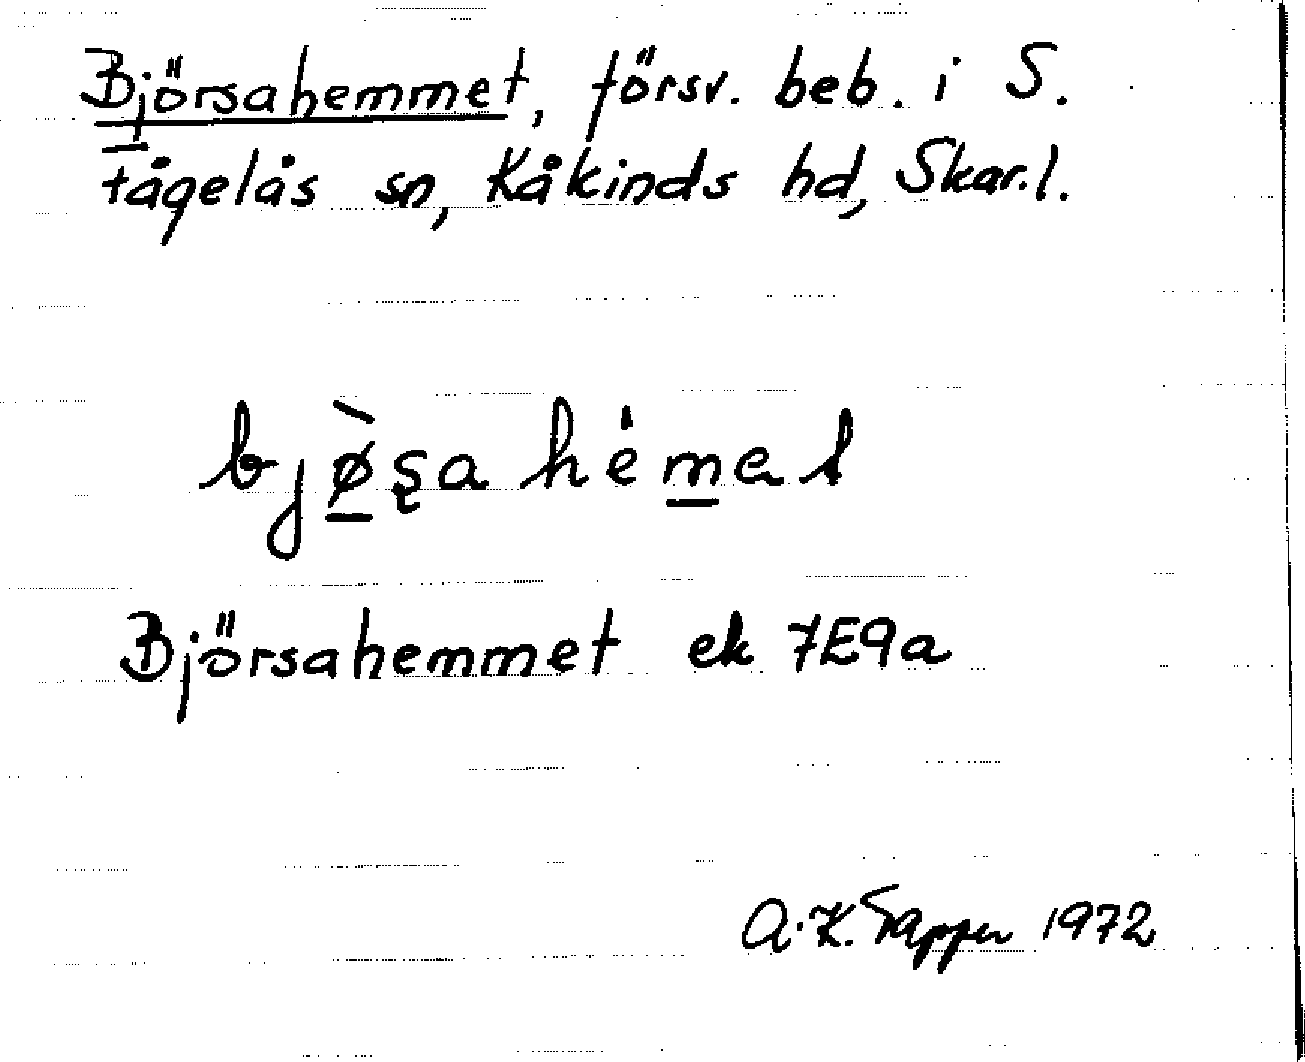 Björsahemmet, försv. beb. i S.
Fågelås sn, Kåkinds hd, Skar.l.
bjø̀ʂa hémet
Björsahemmet ek 7E9a
A.K. Tapper 1972